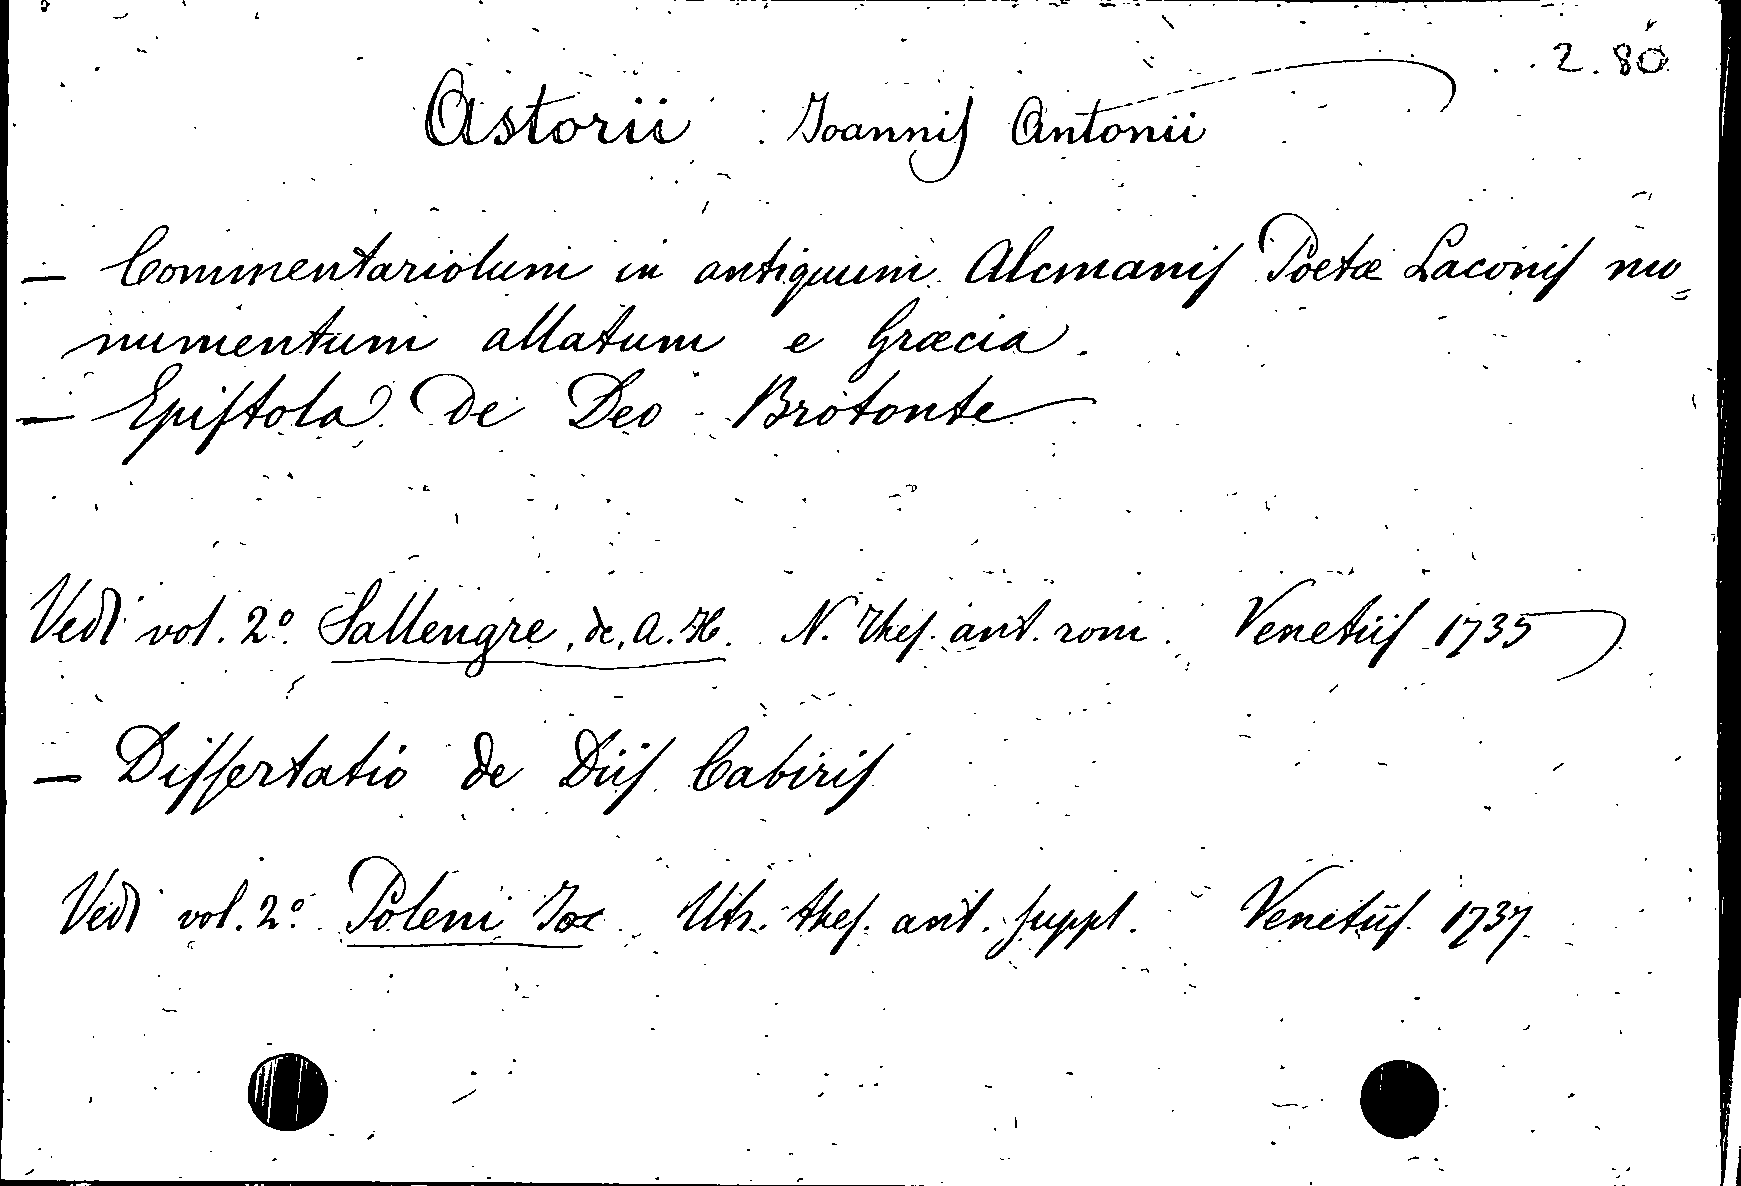 2.80
Astorii Joannis Antonii
— Commentariolum in antiquum Alcmanis Poetæ Laconis mo=
numentum allatum e Græcia.
— Epistola de Deo Brotonte
Vedi vol. 2º Sallengre, de, A. H. N. Thes. ant. rom. Venetiis 1735
— Dissertatio de Diis Cabiris
Vedi vol. 2º Poleni Jo. Utr. thes. ant. suppl. Venetiis 1737